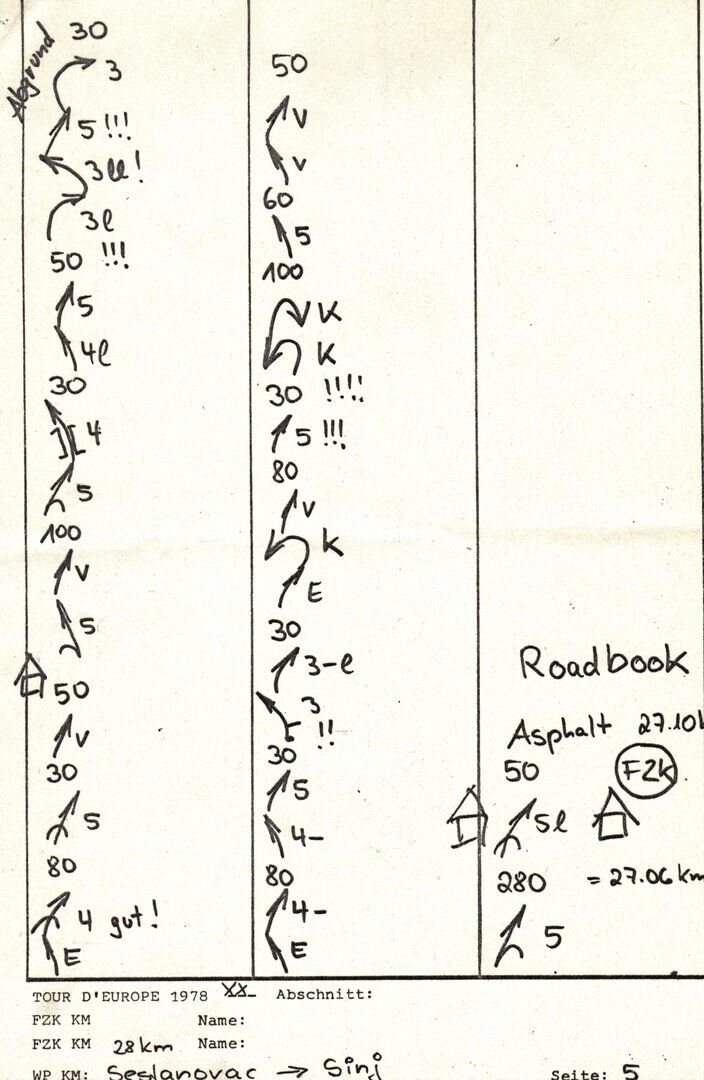 30
Abgrund
3
5 !!!
3ll!
3l
50 !!!
5
4l
30
][ 4
5
100
V
5
50
V
30
5
80
4 gut!
E
50
V
V
60
5
100
K
K
30 !!!!
5 !!!
80
V
K
E
30
3-l
3
!!
30
5
4-
80
4-
E
Roadbook
Asphalt 27.10k
50 FZK
5l
280 = 27.06 km
5
TOUR D'EUROPE 1978 Abschnitt:
FZK KM Name:
FZK KM 28km Name:
WP KM: Sestanovac → Sinj Seite: 5